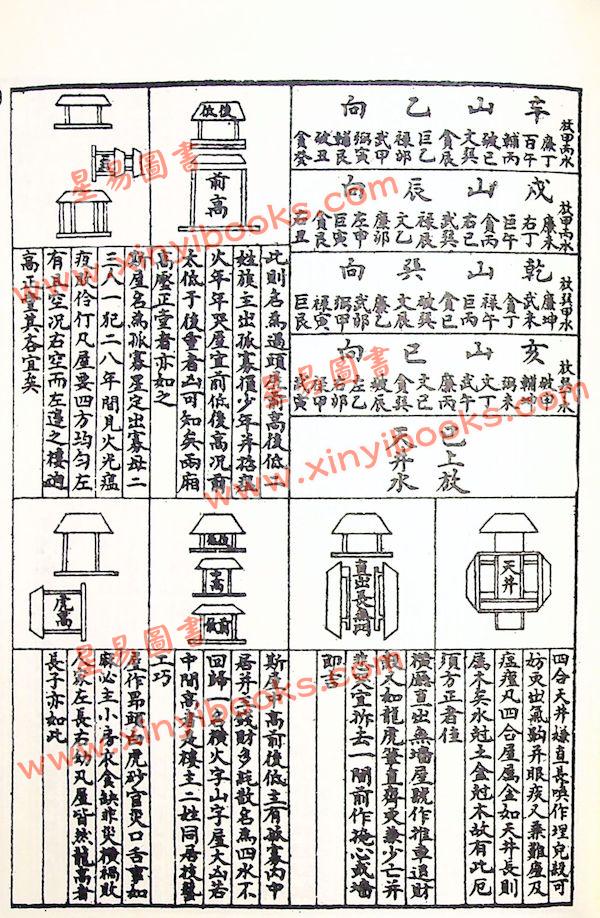 放甲丙水
辛山乙向
廉丁 百午 輔丙 破巳 文巽 貪辰 巨乙 祿卯 武甲 弼寅 輔艮 破丑 貪癸
放甲丙水
戌山辰向
廉未 右丁 巨午 貪丙 右巳 武巽 祿辰 文乙 廉卯 左甲 巨寅 貪艮 右丑
放巽甲水
乾山巽向
廉坤 武未 貪丁 祿午 巨丙 貪巳 破巽 文辰 廉乙 武卯 弼甲 祿寅 巨艮
亥山巳向
破申 輔坤 弼未 文丁 武午 廉丙 文巳 貪巽 破辰 左乙 右卯 祿甲 武寅
已上放
天井水
後低
前高
此則名為過頭屋前高後低二
姓族主出孤寡損少年并瘟
火年年哭屋宜前低後高況前
太低于後重者凶可知矣兩廂
高壓正堂者亦如之
斯屋名為孤寡屋定出寡母二
三八一犯二八年間見火光瘟
疫耿伶仃凡屋要四方均勻左
有且空況右空而左邊之樓
高於堂其吝宜矣
天井
四合天井嫌直長喚作埋兒殺可
妨更出氣齁并眼疾人兼難產及
瘟瘴凡四合屋屬金如天井長則
屬木矣水尅土金尅木故有此厄
須方正者佳
直出長無門
橫廳直出無墻屋號作推車退財
龍虎直齊更兼少亡并
宜拆去一間前作掩心或墻
即吉
後低
中高
前低
斯屋中高前後低主有孤寡丙中
居并主錢財多耗散名為四水不
回歸一名橫火字山字屋大凶若
中間高者是樓主二姓同居技藝
工巧
虎高
屋作昂頭白虎砂官災口舌事如
麻必主小房衣食缺非災橫禍敗
人家左長右幼凡屋皆然龍高者
長子亦如此
星易圖書
www.xinyibooks.com
星易圖書
www.xinyibooks.com
星易圖書
www.xinyibooks.com